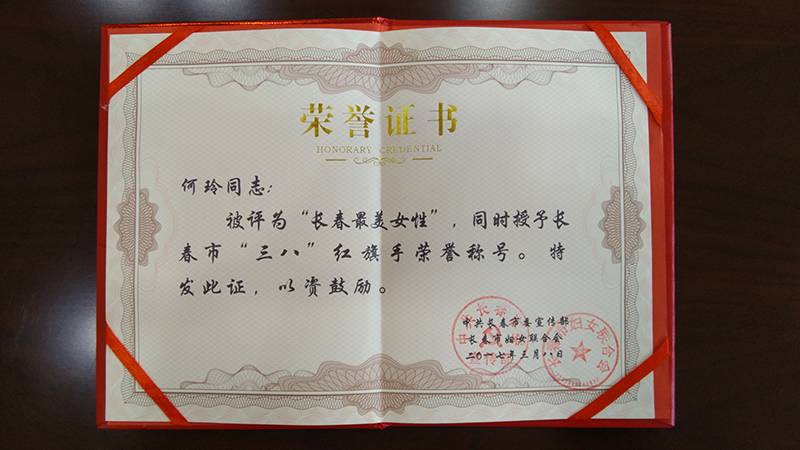 荣誉证书
HONORARY CREDENTIAL
何玲同志：
被评为“长春最美女性”，同时授予长
春市“三八”红旗手荣誉称号。特
发此证，以资鼓励。
中共长春市委宣传部
长春市妇女联合会
二〇一七年三月八日